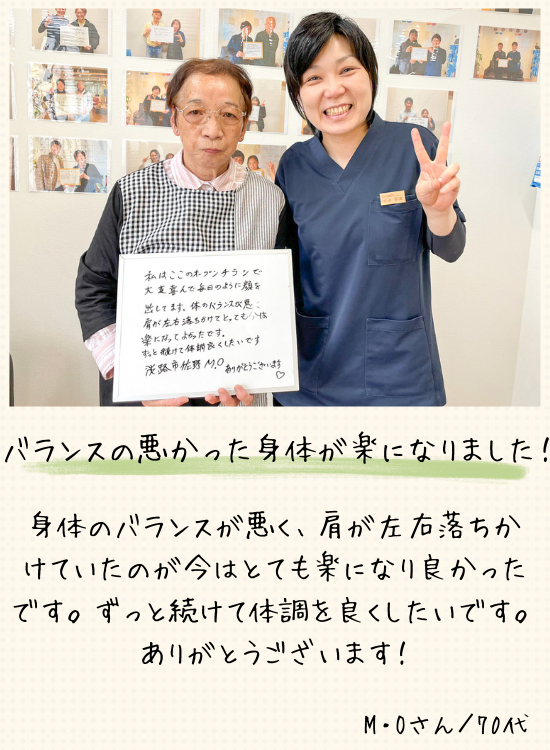 私はここのオープンチラシで
大変喜んで毎日のように顔を
出してます。体のバランスが悪く
肩が左右落ちかけてとっても
楽になってよかったです。
ずっと続けて体調良くしたいです
淡路市佐野 M.O ありがとうございます♡
バランスの悪かった身体が楽になりました!
身体のバランスが悪く、肩が左右落ちか
けていたのが今はとても楽になり良かった
です。ずっと続けて体調を良くしたいです。
ありがとうございます!
M・Oさん/70代